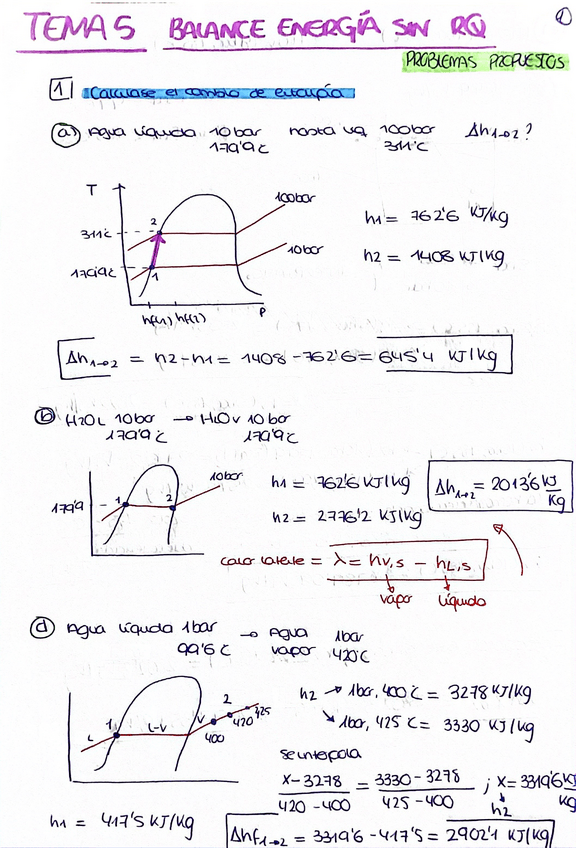 TEMA 5 BALANCE ENERGÍA SIN RQ
1
PROBLEMAS PROPUESTOS
1 Calculase el cambio de entalpía
a) Agua líquida 10 bar hasta liq 100 bar Δh1→2?
179'9 c 311°c
T
100bar
311°c
2
10bar
179'9c
1
hf(1) hf(2) P
h1 = 762'6 KJ/Kg
h2 = 1408 KJ/Kg
Δh1→2 = h2-h1 = 1408-762'6 = 645'4 KJ/Kg
b) H2OL 10bar → H2Ov 10bar
179'9 c 179'9 c
10bar
179'9
1
2
h1 = 762'6 KJ/Kg
h2 = 2776'2 KJ/Kg
Δh1→2 = 2013'6 KJ/Kg
calor latente = λ = hv,s - hL,s
vapor líquido
d) Agua líquida 1bar → Agua 1bar
99'6 c vapor 420°C
L
1
L-V
V
400
2
420
425
h2 → 1bar, 400°C = 3278 KJ/Kg
↘ 1bar, 425°C = 3330 KJ/Kg
se interpola
x-3278 / 420-400 = 3330-3278 / 425-400 ; x = 3319'6 KJ/Kg
h2
h1 = 417'5 KJ/Kg
Δhf1→2 = 3319'6 - 417'5 = 2902'1 KJ/Kg